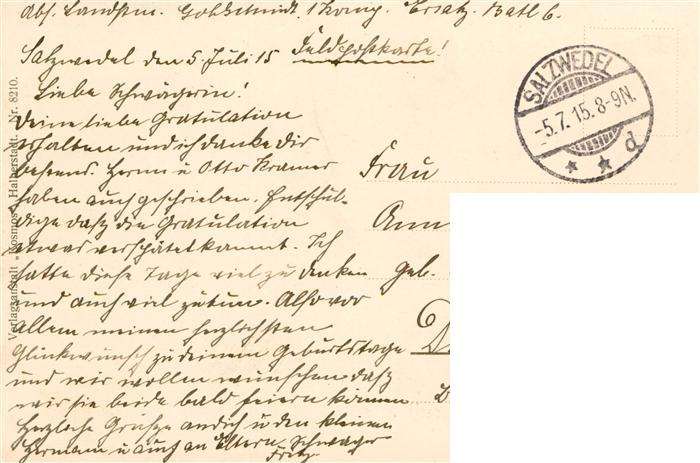 Abs. Landstm. Goldschmidt, 1 Komp. Ersatz. Batl 6.
Salzwedel den 5 Juli 15 Feldpostkarte!
Liebe Schwägerin!
Deine liebe Gratulation
erhalten und ich danke dir
bestens. Herm u Otto Kramer
haben auch geschrieben. Entschul-
dige dasz die Gratulation
etwas verspätet kommt. Ich
hatte diese Tage viel zu denken
und auch viel zutun. Also vor
allem meinen herzlichsten
Glückwunsch zu deinem Geburtstage
und wir wollen wünschen dasz
wir sie beide bald feiern können
Herzliche Grüsze an dich u den kleinen
Hermann u auch an die Eltern, Schwager
Fritz
SALZWEDEL
-5.7.15. 8-9N.
* * d
Frau
Ann
geb.
Verlagsanstalt „Kosmos“, Halberstadt. Nr. 8210.